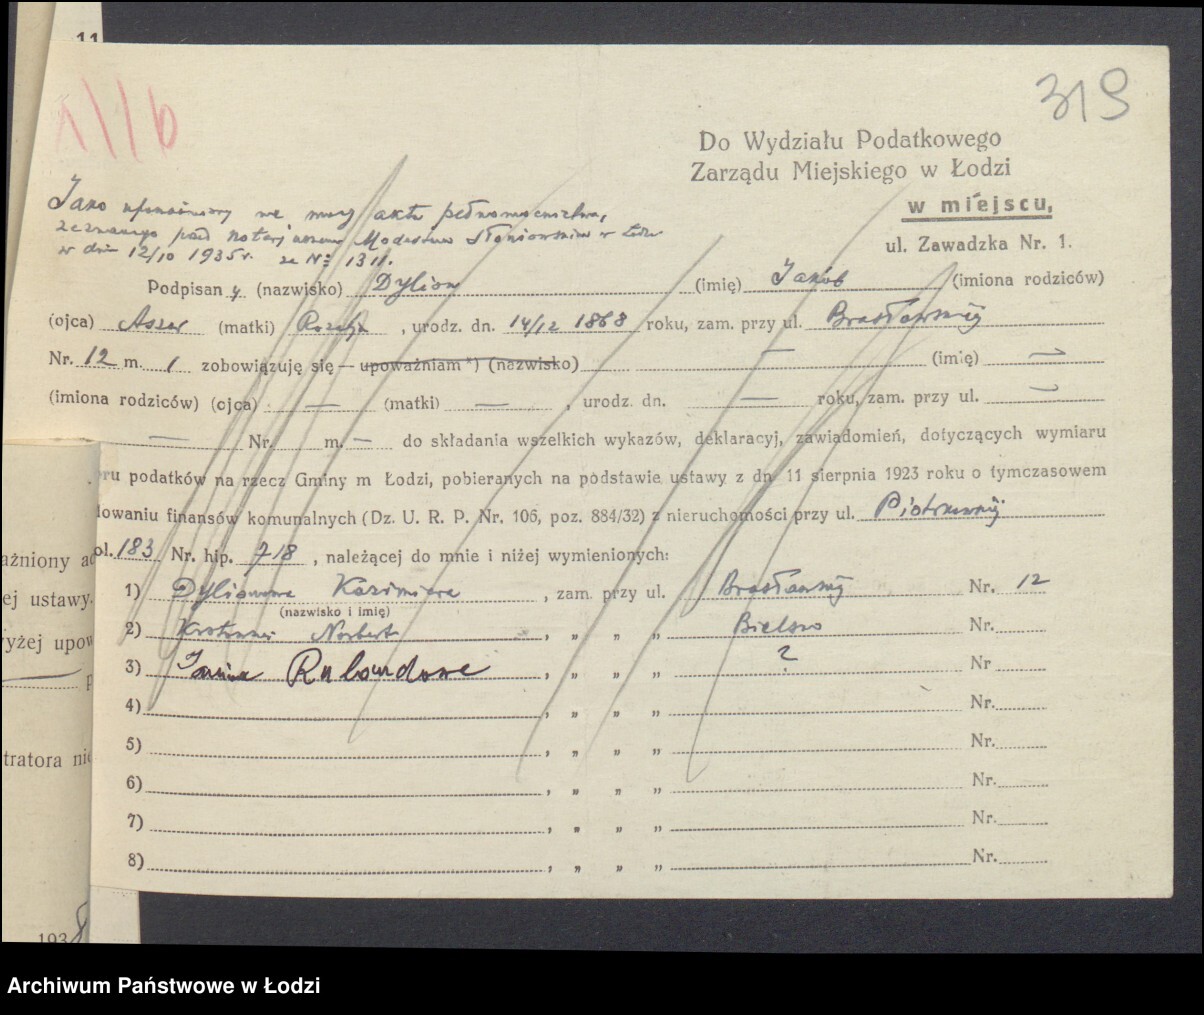 11
319
Do Wydziału Podatkowego
Zarządu Miejskiego w Łodzi
w miejscu,
ul. Zawadzka Nr. 1.
Jako upoważniony we mocy aktu pełnomocnictwa,
zeznanego przed notarjuszem Modestem Słoniowskim w Łodzi
w dniu 12/10 1935 r. za Nr 1311.
Podpisany (nazwisko) Dylion (imię) Jakób (imiona rodziców)
(ojca) Aszer (matki) Rozalja, urodz. dn. 14/12 1868 roku, zam. przy ul.
Nr. 12 m. 1 zobowiązuję się — upoważniam *) (nazwisko) — (imię) —
(imiona rodziców) (ojca) — (matki) —, urodz. dn. — roku, zam. przy ul. —
— Nr. m. — do składania wszelkich wykazów, deklaracyj, zawiadomień, dotyczących wymiaru
oru podatków na rzecz Gminy m Łodzi, pobieranych na podstawie ustawy z dn. 11 sierpnia 1923 roku o tymczasowem
lowaniu finansów komunalnych (Dz. U. R. P. Nr. 106, poz. 884/32) z nieruchomości przy ul. Piotrkowskiej
ol. 183 Nr. hip. 718, należącej do mnie i niżej wymienionych:
1) Dylionowa Kazimiera, zam. przy ul. Nr. 12
(nazwisko i imię)
2) Norbert, „ „ „ Bielsko Nr.
3) Janina, „ „ „ ? Nr
4) , „ „ „ Nr.
5) , „ „ „ Nr.
6) , „ „ „ Nr.
7) , „ „ „ Nr.
8) , „ „ „ Nr.
ażniony
ej ustawy.
yżej upow
p
tratora nie
1938
Archiwum Państwowe w Łodzi